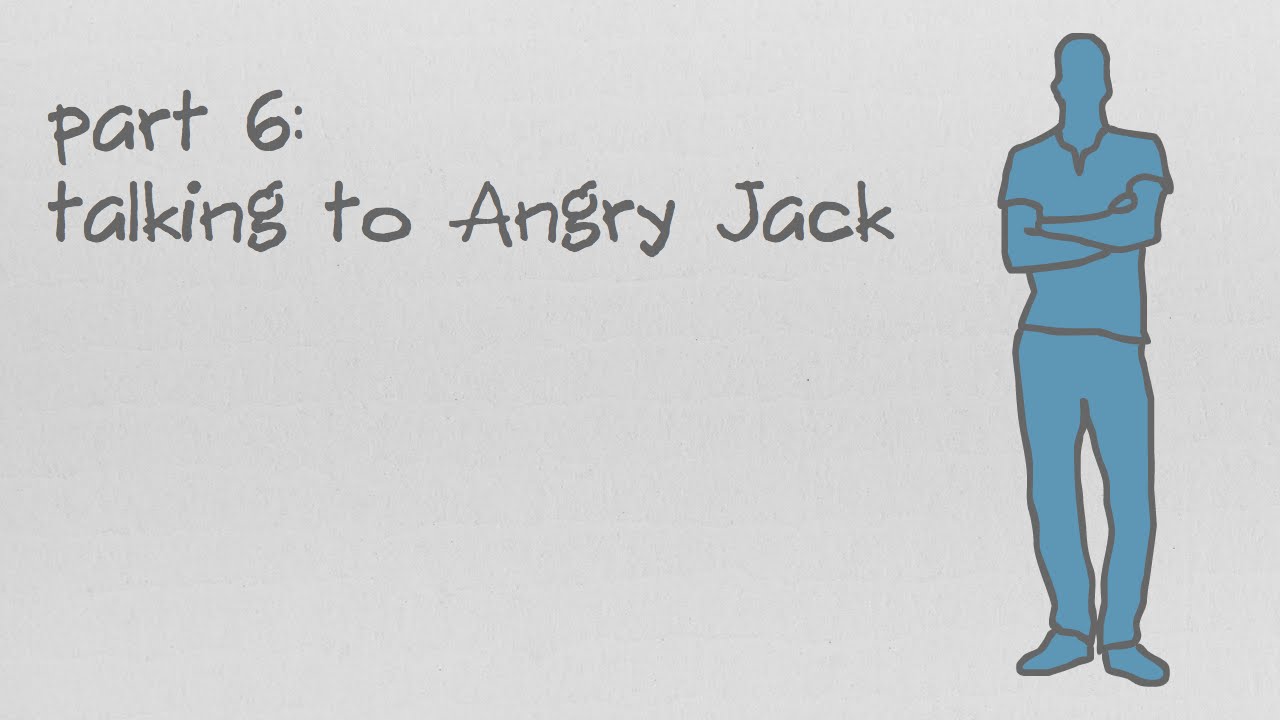 part 6:
talking to Angry Jack